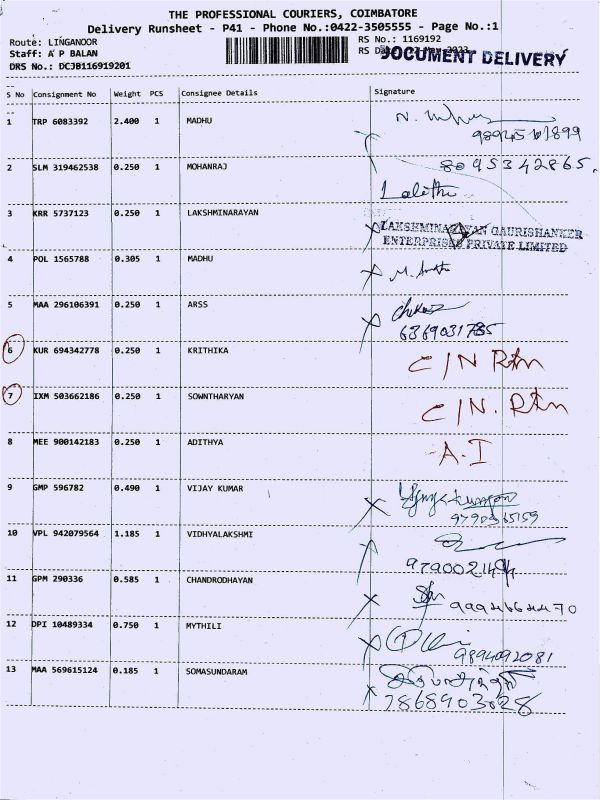 THE PROFESSIONAL COURIERS, COIMBATORE
Delivery Runsheet - P41 - Phone No.:0422-3505555 - Page No.:1
Route: LINGANOOR
RS No.: 1169192
Staff: A P BALAN
DOCUMENT DELIVERY
DRS No.: DCJB116919201
S No Consignment No Weight PCS Consignee Details Signature
1 TRP 6083392 2.400 1 MADHU
2 SLM 319462538 0.250 1 MOHANRAJ 8095342865.
Lalitha
3 KRR 5737123 0.250 1 LAKSHMINARAYAN
LAKSHMINARAYAN GAURISHANKER
ENTERPRISES PRIVATE LIMITED
4 POL 1565788 0.305 1 MADHU
5 MAA 296106391 0.250 1 ARSS
6369031785
6 KUR 694342778 0.250 1 KRITHIKA C/N Rtn
7 IXM 503662186 0.250 1 SOWNTHARYAN C/N. Rtn
8 MEE 900142183 0.250 1 ADITHYA A.I
9 GMP 596782 0.490 1 VIJAY KUMAR
10 VPL 942079564 1.185 1 VIDHYALAKSHMI
11 GPM 290336 0.585 1 CHANDRODHAYAN
12 DPI 10489334 0.750 1 MYTHILI
9894092081
13 MAA 569615124 0.185 1 SOMASUNDARAM
7868903028